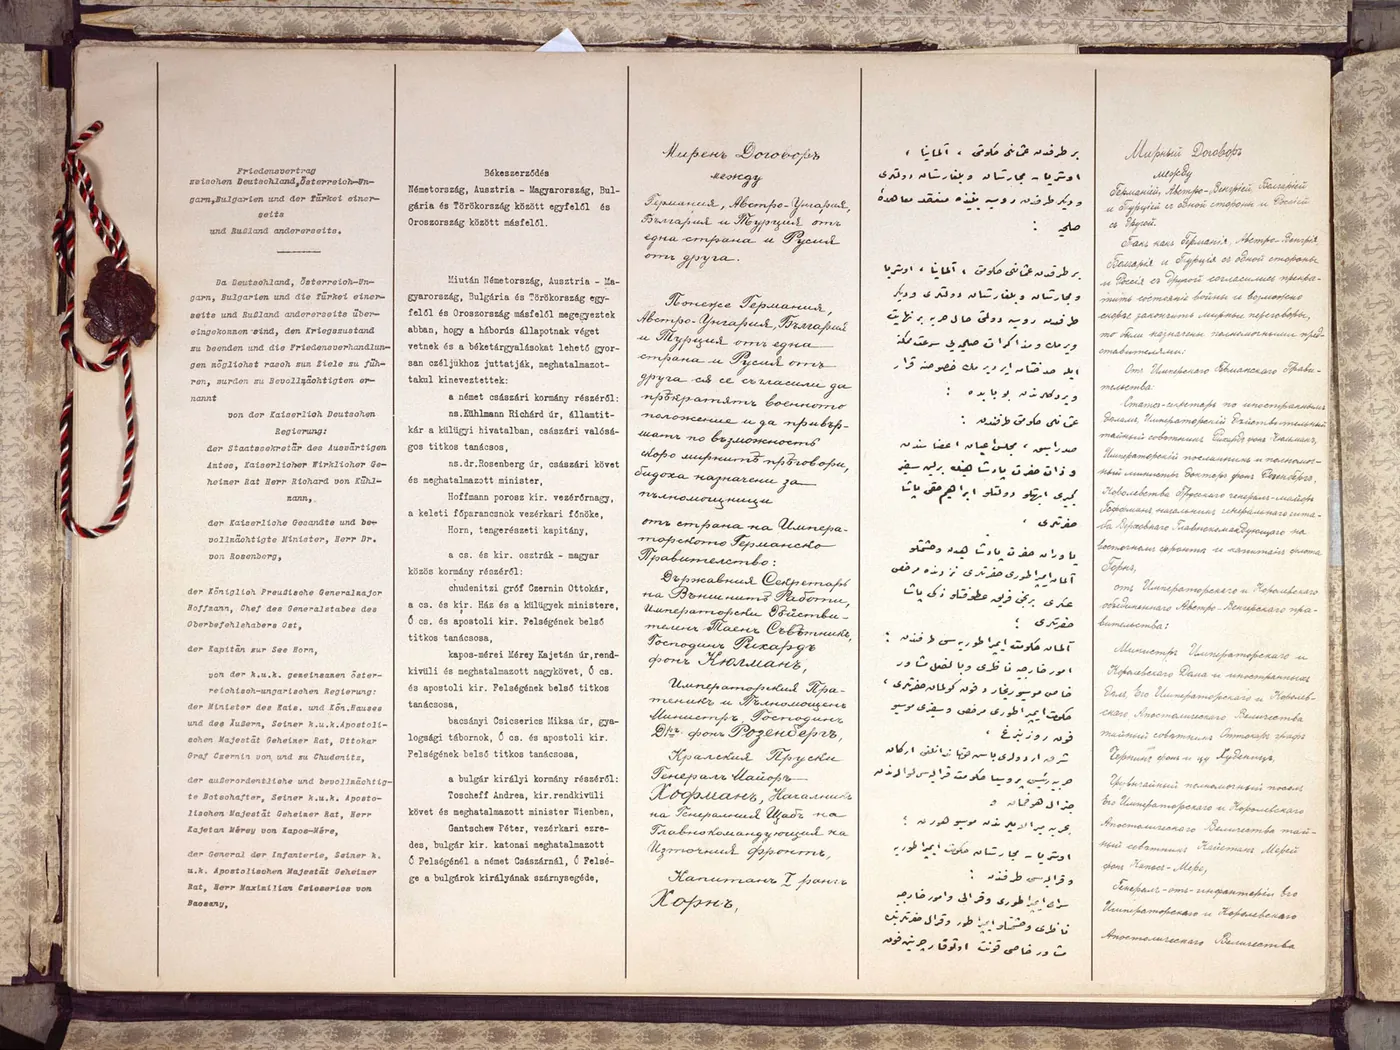 Friedensvertrag
zwischen Deutschland, Österreich-Un-
garn, Bulgarien und der Türkei einer-
seits
und Rußland andererseits.
Da Deutschland, Österreich-Un-
garn, Bulgarien und die Türkei einer-
seits und Rußland andererseits über-
eingekommen sind, den Kriegszustand
zu beenden und die Friedensverhandlun-
gen möglichst rasch zum Ziele zu füh-
ren, wurden zu Bevollmächtigten er-
nannt
von der Kaiserlich Deutschen
Regierung:
der Staatssekretär des Auswärtigen
Amtes, Kaiserlicher Wirklicher Ge-
heimer Rat Herr Richard von Kühl-
mann,
der Kaiserliche Gesandte und be-
vollmächtigte Minister, Herr Dr.
von Rosenberg,
der Königlich Preußische Generalmajor
Hoffmann, Chef des Generalstabes des
Oberbefehlshabers Ost,
der Kapitän zur See Horn,
von der k.u.k. gemeinsamen öster-
reichisch-ungarischen Regierung:
der Minister des Kais. und Kön. Hauses
und des Äußern, Seiner k.u.k. Apostoli-
schen Majestät Geheimer Rat, Ottokar
Graf Czernin von und zu Chudenitz,
der außerordentliche und bevollmächtig-
te Botschafter, Seiner k.u.k. Aposto-
lischen Majestät Geheimer Rat, Herr
Kajetan Mérey von Kapos-Mére,
der General der Infanterie, Seiner k.
u.k. Apostolischen Majestät Geheimer
Rat, Herr Maximilian Csicserics von
Bacsany,
Békeszerződés
Németország, Ausztria - Magyarország, Bul-
gária és Törökország között egyfelől és
Oroszország között másfelől.
Miután Németország, Ausztria - Ma-
gyarország, Bulgária és Törökország egy-
felől és Oroszország másfelől megegyeztek
abban, hogy a háborús állapotnak véget
vetnek és a béketárgyalásokat lehető gyor-
san czéljukhoz juttatják, meghatalmazot-
takul kineveztettek:
a német császári kormány részéről:
ns.Kühlmann Richárd úr, államtit-
kár a külügyi hivatalban, császári valósá-
gos titkos tanácsos,
ns.dr.Rosenberg úr, császári követ
és meghatalmazott minister,
Hoffmann porosz kir. vezérőrnagy,
a keleti főparancsnok vezérkari főnöke,
Horn, tengerészeti kapitány,
a cs. és kir. osztrák - magyar
közös kormány részéről:
chudenitzi gróf Czernin Ottokár,
a cs. és kir. Ház és a külügyek ministere,
Ő cs. és apostoli kir. Felségének belső
titkos tanácsosa,
kapos-mérei Mérey Kajetán úr,rend-
kivüli és meghatalmazott nagykövet, Ő cs.
és apostoli kir. Felségének belső titkos
tanácsosa,
bacsányi Csicserics Miksa úr, gya-
logsági tábornok, Ő cs. és apostoli kir.
Felségének belső titkos tanácsosa,
a bulgár királyi kormány részéről:
Toscheff Andrea, kir.rendkivüli
követ és meghatalmazott minister Wienben,
Gantschew Péter, vezérkari ezre-
des, bulgár kir. katonai meghatalmazott
Ő Felségénál a német Császárnál, Ő Felsé-
ge a bulgárok királyának szárnysegéde,
Миренъ Договоръ
между
Германия, Австро-Унгария,
България и Турция отъ
една страна и Русия
отъ друга.
Понеже Германия,
Австро-Унгария, България
и Турция отъ една
страна и Русия отъ
друга ся се съгласили да
прѣкратятъ военното
положение и да привър-
шатъ по възможность
скоро мирнитѣ прѣговори,
бидоха назначени за
пълномощници
отъ страна на Импера-
торското Германско
Правителство:
Държавния Секретарь
на Външнитѣ Работи,
Императорски Дѣйстви-
теленъ Таенъ Съвѣтникъ,
Господинъ Рихардъ
фонъ Кюлманъ,
Императорския Пра-
теникъ и Пълномощенъ
Министръ, Господинъ
Дръ. фонъ Розенбергъ,
Кралския Пруски
Генералъ Майоръ
Хофманъ, Началникъ
на Генералния Щабъ на
Главнокомандующия на
Източния фронтъ,
Капитанъ I рангъ
Хорнъ,
بر طرفدن عثمانی حكومتی ، آلمانيا ،
اوستريا مجارستان و بلغارستان دولتلری
و ديكر طرفدن روسيه بيننده منعقد معاهدهٔ
صلحيه :
بر طرفدن عثمانی حكومتی ، آلمانيا ، اوستريا
و مجارستان و بلغارستان دولتلری و ديكر
طرفدن روسيه دولتی حال حربه بر نهايت
عثمانی حكومتی طرفندن :
حضرتلری ،
حضرتلری ؛
و قراليسی طرفندن :
Мирный Договоръ
между
Германіей, Австро-Венгріей, Болгаріей
и Турціей съ одной стороны и Россіей
съ другой.
Такъ какъ Германія, Австро-Венгрія,
Болгарія и Турція съ одной стороны
и Россія съ другой согласились прекра-
тить состояніе войны и возможно
скорѣе закончить мирные переговоры,
то были назначены полномочными пред-
ставителями:
Отъ Имперскаго Германскаго Прави-
тельства:
Статсъ-секретарь по иностраннымъ
дѣламъ, Императорскій дѣйствительный
тайный совѣтникъ Рихардъ фонъ Кюльманъ,
Императорскій посланникъ и полномоч-
ный министръ докторъ фонъ Розенбергъ,
Королевства Прусскаго генералъ-майоръ
Гофманъ, начальникъ генеральнаго шта-
ба Верховнаго Главнокомандующаго на
восточномъ фронтѣ и капитанъ флота
Горнъ,
отъ Императорскаго и Королевскаго
объединеннаго Австро-Венгерскаго пра-
вительства:
Министръ Императорскаго и
Королевскаго Дома и иностранныхъ
дѣлъ, Его Императорскаго и Королев-
скаго Апостолическаго Величества
тайный совѣтникъ Оттокаръ графъ
Чернинъ фонъ и цу Худеницъ,
Чрезвычайный и полномочный посолъ
Его Императорскаго и Королевскаго
Апостолическаго Величества тай-
ный совѣтникъ Кайетанъ Мерей
фонъ Капосъ-Мере,
Генералъ-отъ-инфантеріи Его
Императорскаго и Королевскаго
Апостолическаго Величества